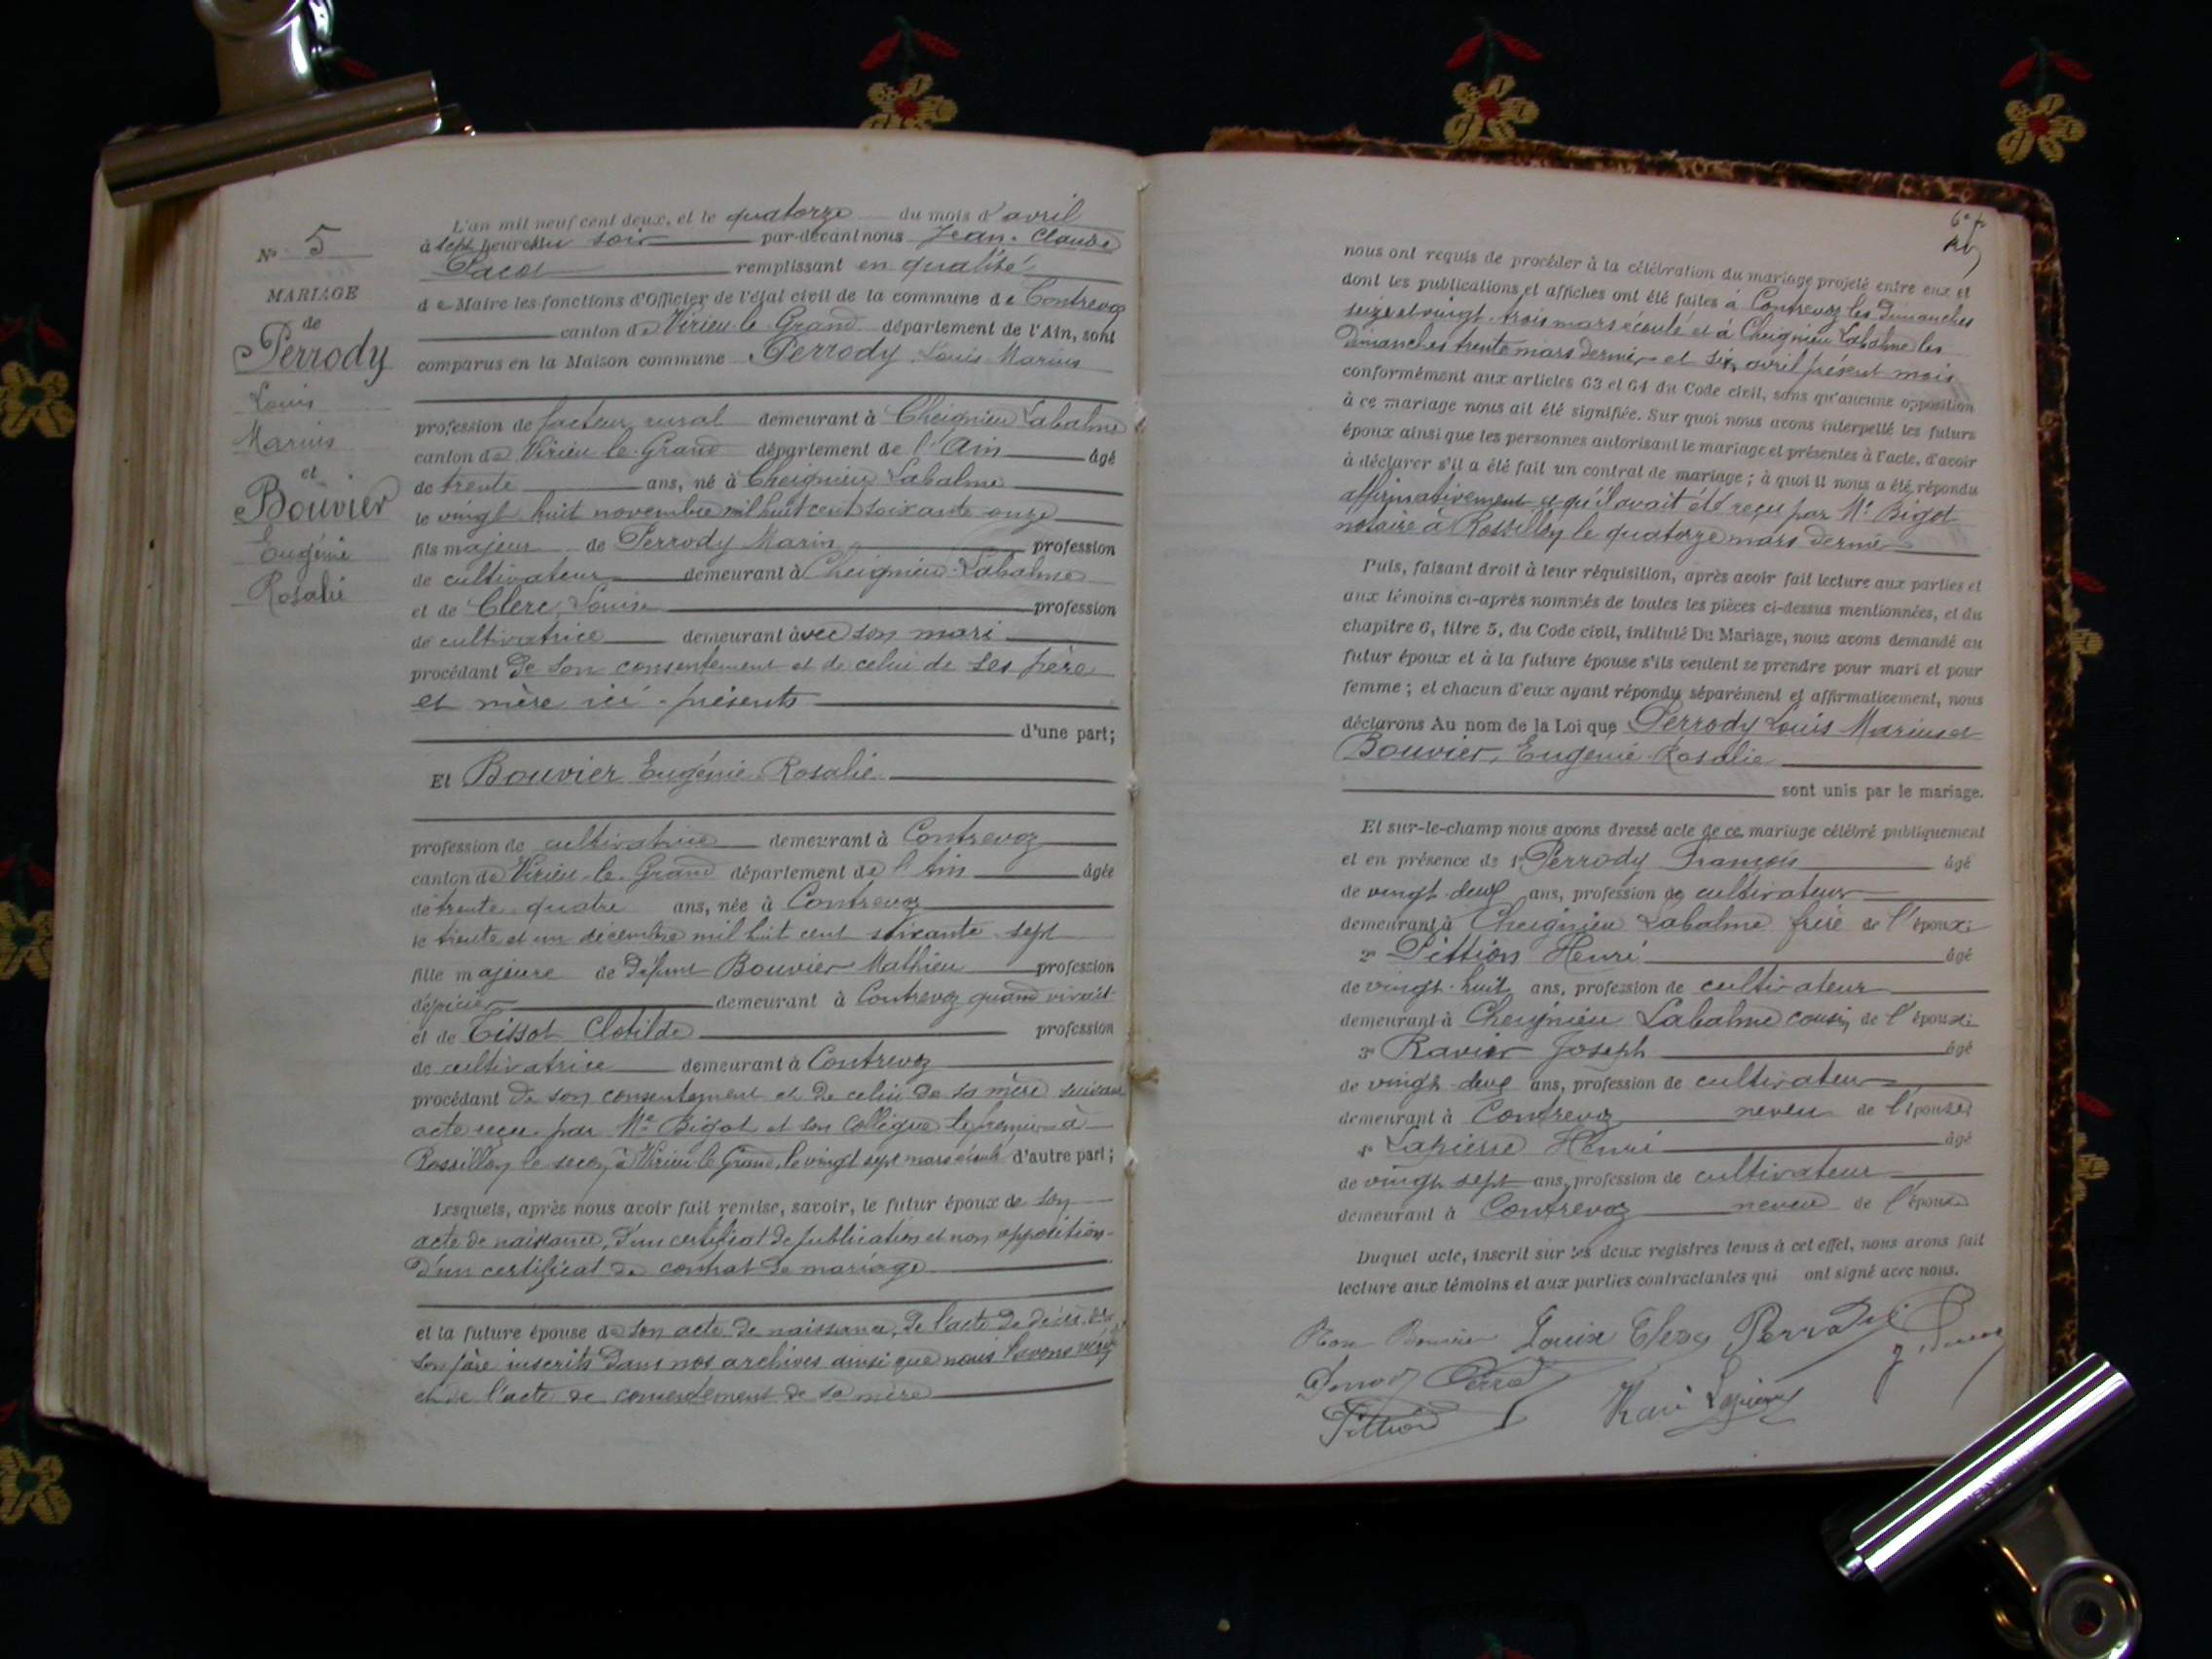 N° 5
MARIAGE
de
Perrody
Louis
Marius
et
Bouvier
Eugénie
Rosalie
L'an mil neuf cent deux, et le quatorze du mois d'avril
à sept heures du soir par-devant nous Jean-Claude
Pacot remplissant en qualité
de Maire les fonctions d'Officier de l'état civil de la commune de Contrevoz
canton de Virieu-le-Grand département de l'Ain, sont
comparus en la Maison commune Perrody Louis Marius
profession de facteur rural demeurant à Cheignieu Labalme
canton de Virieu-le-Grand département de l'Ain âgé
de trente ans, né à Cheignieu Labalme
le vingt huit novembre mil huit cent soixante onze
fils majeur de Perrody Marin profession
de cultivateur demeurant à Cheignieu-Labalme
et de Clerc, Louise profession
de cultivatrice demeurant avec son mari
procédant de son consentement et de celui de ses père
et mère ici présents
d'une part;
Et Bouvier Eugénie Rosalie
profession de cultivatrice demeurant à Contrevoz
canton de Virieu-le-Grand département de l'Ain âgée
de trente quatre ans, née à Contrevoz
le trente et un décembre mil huit cent soixante sept
fille majeure de défunt Bouvier Mathieu profession
d'épicier demeurant à Contrevoz quand vivait
et de Tissot Clotilde profession
de cultivatrice demeurant à Contrevoz
procédant de son consentement et de celui de sa mère suivant
acte reçu par Me Bigot et son collègue le premier à
Rossillon le second à Virieu le Grand, le vingt sept mars écoulé d'autre part;
Lesquels, après nous avoir fait remise, savoir, le futur époux de son
acte de naissance, d'un certificat de publication et non opposition
d'un certificat de contrat de mariage
et la future épouse de son acte de naissance, de l'acte de décès de
son père inscrits dans nos archives ainsi que nous l'avons vérifié
et de l'acte de consentement de sa mère
nous ont requis de procéder à la célébration du mariage projeté entre eux et
dont les publications et affiches ont été faites à Contrevoz les dimanches
seize et vingt-trois mars écoulé et à Cheignieu Labalme les
dimanches trente mars dernier et six avril présent mois
conformément aux articles 63 et 64 du Code civil, sans qu'aucune opposition
à ce mariage nous ait été signifiée. Sur quoi nous avons interpellé les futurs
époux ainsi que les personnes autorisant le mariage et présentes à l'acte, d'avoir
à déclarer s'il a été fait un contrat de mariage; à quoi il nous a été répondu
affirmativement et qu'il avait été reçu par Me Bigot
notaire à Rossillon le quatorze mars dernier
Puis, faisant droit à leur réquisition, après avoir fait lecture aux parties et
aux témoins ci-après nommés de toutes les pièces ci-dessus mentionnées, et du
chapitre 6, titre 5, du Code civil, intitulé Du Mariage, nous avons demandé au
futur époux et à la future épouse s'ils veulent se prendre pour mari et pour
femme; et chacun d'eux ayant répondu séparément et affirmativement, nous
déclarons Au nom de la Loi que Perrody Louis Marius et
Bouvier, Eugénie Rosalie
sont unis par le mariage.
Et sur-le-champ nous avons dressé acte de ce mariage célébré publiquement
et en présence de 1° Perrody François âgé
de vingt-deux ans, profession de cultivateur
demeurant à Cheignieu Labalme frère de l'époux
2° Pittion Henri âgé
de vingt-huit ans, profession de cultivateur
demeurant à Cheignieu Labalme cousin de l'époux
3° Ravier Joseph âgé
de vingt-deux ans, profession de cultivateur
demeurant à Contrevoz neveu de l'épouse
4° Lapierre Henri âgé
de vingt sept ans, profession de cultivateur
demeurant à Contrevoz neveu de l'épouse
Duquel acte, inscrit sur les deux registres tenus à cet effet, nous avons fait
lecture aux témoins et aux parties contractantes qui ont signé avec nous.
Bouvier Louise Clerc Perrody
Pittion